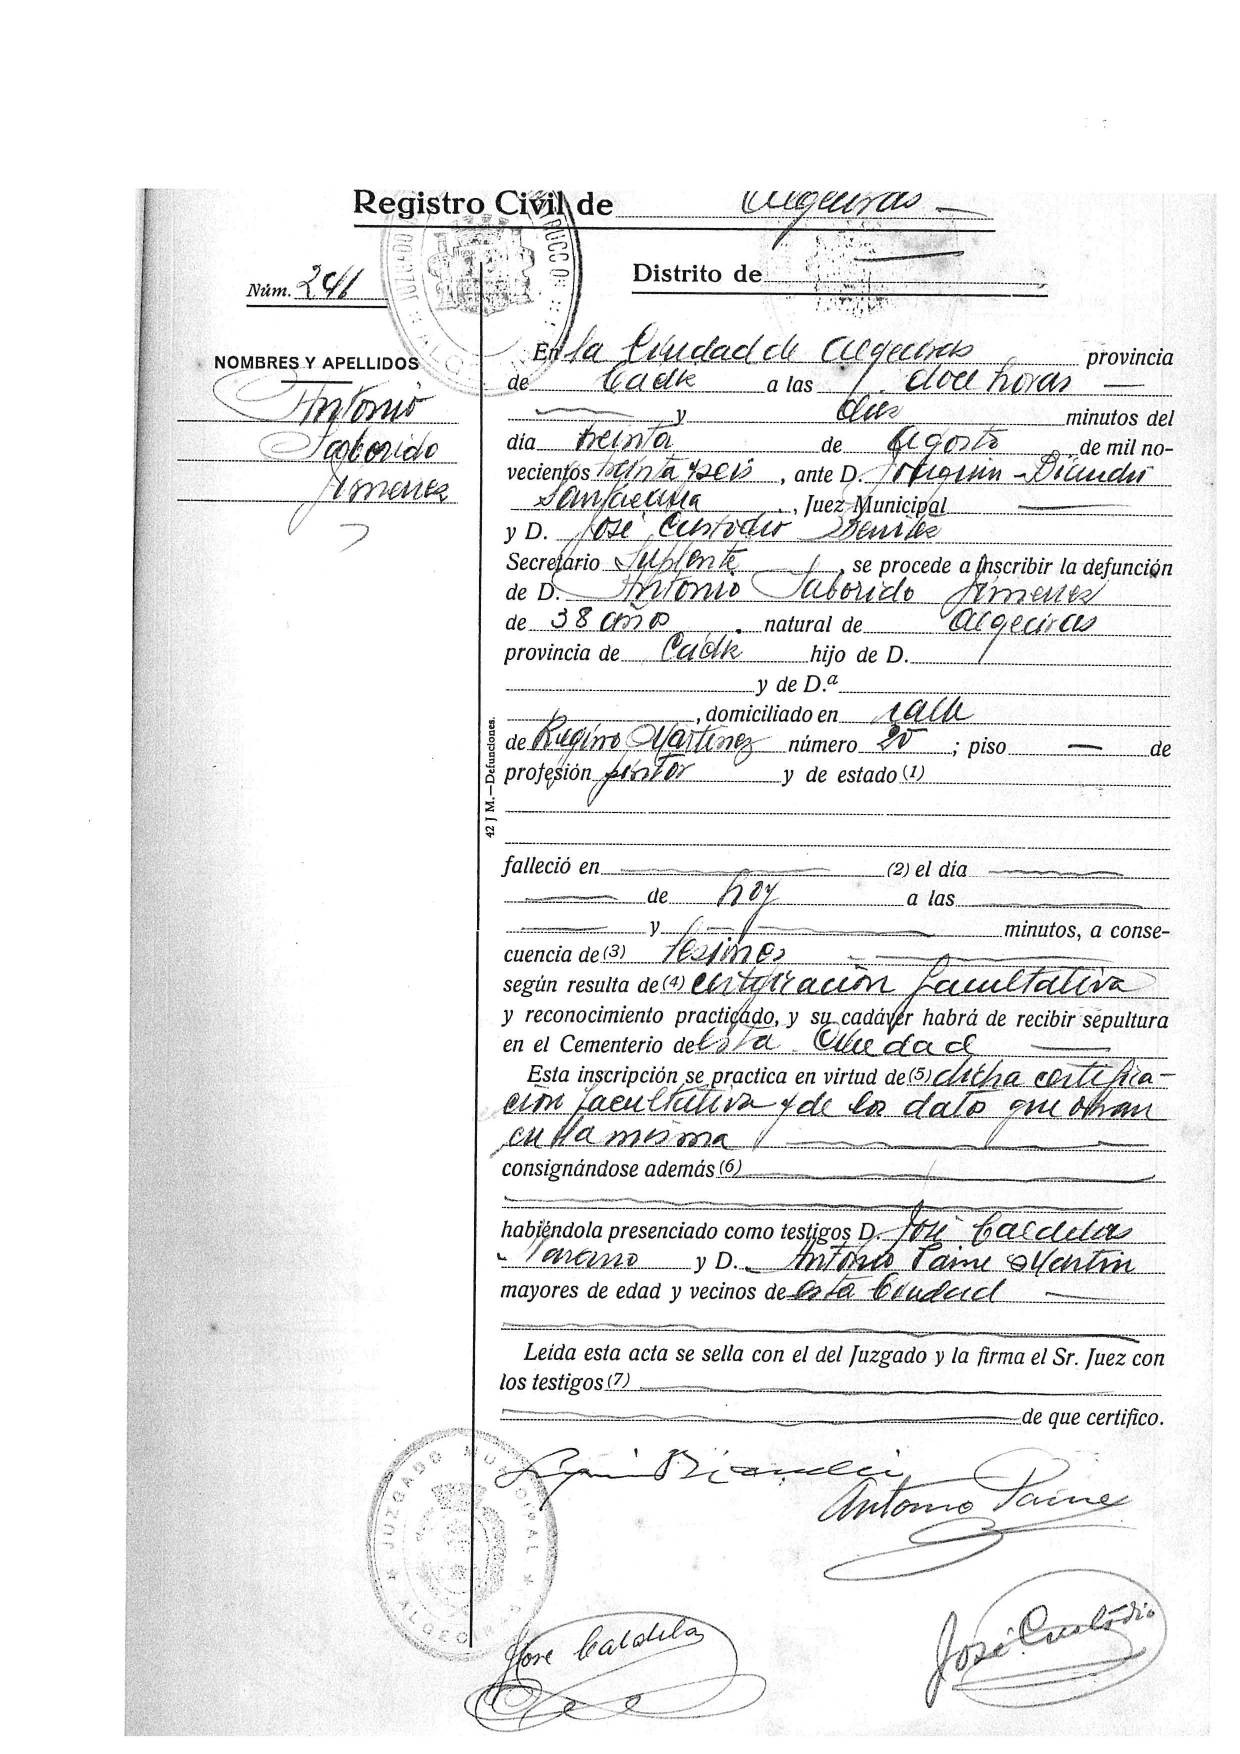 Registro Civil de Algeciras
Distrito de
Núm. 241
NOMBRES Y APELLIDOS
Antonio
Saborido
Jimenez
En la Ciudad de Algeciras provincia
de Cadiz a las doce horas
y diez minutos del
día treinta de Agosto de mil no-
vecientos treinta y seis, ante D. Joaquin Bianchi
Santacana, Juez Municipal
y D. José Custodio Benitez
Secretario Suplente, se procede a inscribir la defunción
de D. Antonio Saborido Jimenez
de 38 años natural de Algeciras
provincia de Cadiz hijo de D.
y de D.ª
, domiciliado en calle
de Regino Martinez número 20 ; piso — de
profesión pintor y de estado (1)
falleció en (2) el día
de hoy a las
y minutos, a conse-
cuencia de (3) lesiones
según resulta de (4) certificación facultativa
y reconocimiento practicado, y su cadáver habrá de recibir sepultura
en el Cementerio de esta Ciudad
Esta inscripción se practica en virtud de (5) dicha certifica-
ción facultativa y de los dato que obran
en la misma
consignándose además (6)
habiéndola presenciado como testigos D. José Caldelas
y D. Antonio Paine Martin
mayores de edad y vecinos de esta Ciudad
Leída esta acta se sella con el del Juzgado y la firma el Sr. Juez con
los testigos (7)
de que certifico.
42 J M.—Defunciones.
JUZGADO MUNICIPAL ★ ALGECIRAS ★
Bianchi
Antonio Paine
José Caldela
José Custodio